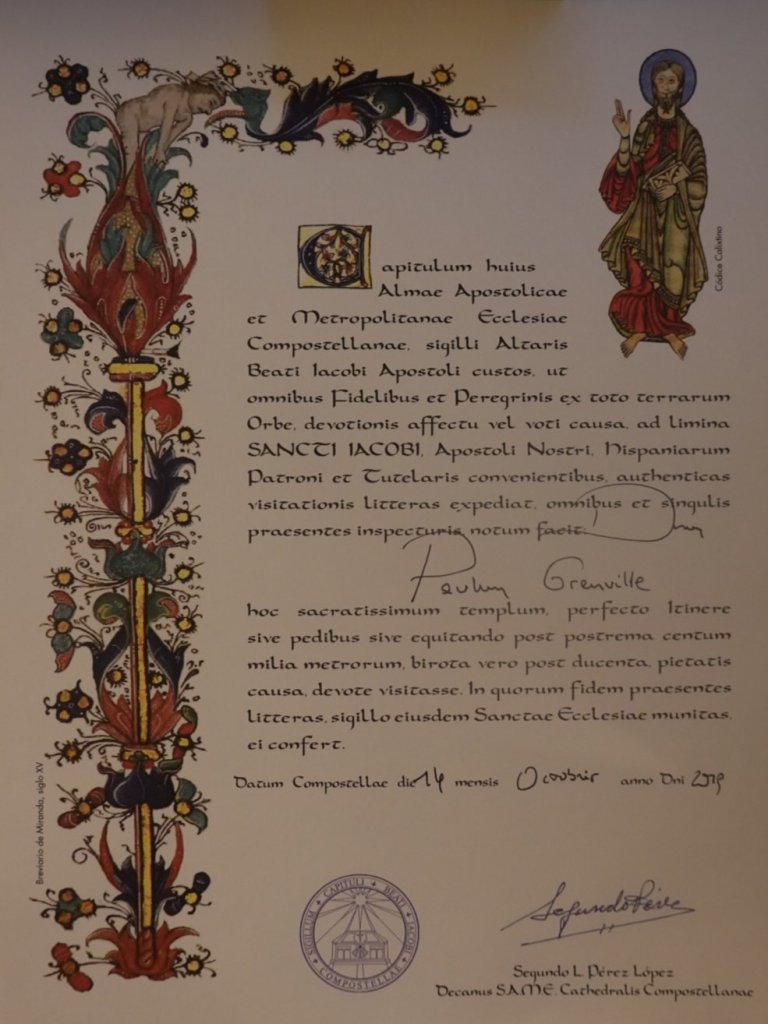 Códice Calixtino
Capitulum huius
Almae Apostolicae
et Metropolitanae Ecclesiae
Compostellanae, sigilli Altaris
Beati Iacobi Apostoli custos, ut
omnibus Fidelibus et Peregrinis ex toto terrarum
Orbe, devotionis affectu vel voti causa, ad limina
SANCTI IACOBI, Apostoli Nostri, Hispaniarum
Patroni et Tutelaris convenientibus, authenticas
visitationis litteras expediat, omnibus et singulis
praesentes inspecturis notum facit:
Grenville
hoc sacratissimum templum, perfecto Itinere
sive pedibus sive equitando post postrema centum
milia metrorum, birota vero post ducenta, pietatis
causa, devote visitasse. In quorum fidem praesentes
litteras, sigillo eiusdem Sanctae Ecclesiae munitas,
ei confert.
Datum Compostellae die 14 mensis Octobris anno Dni 2019
Breviario de Miranda, siglo XV
SIGILLUM CAPITULI BEATI JACOBI COMPOSTELLAE
Segundo Pérez
Segundo L. Pérez López
Decanus S.A.M.E. Cathedralis Compostellanae